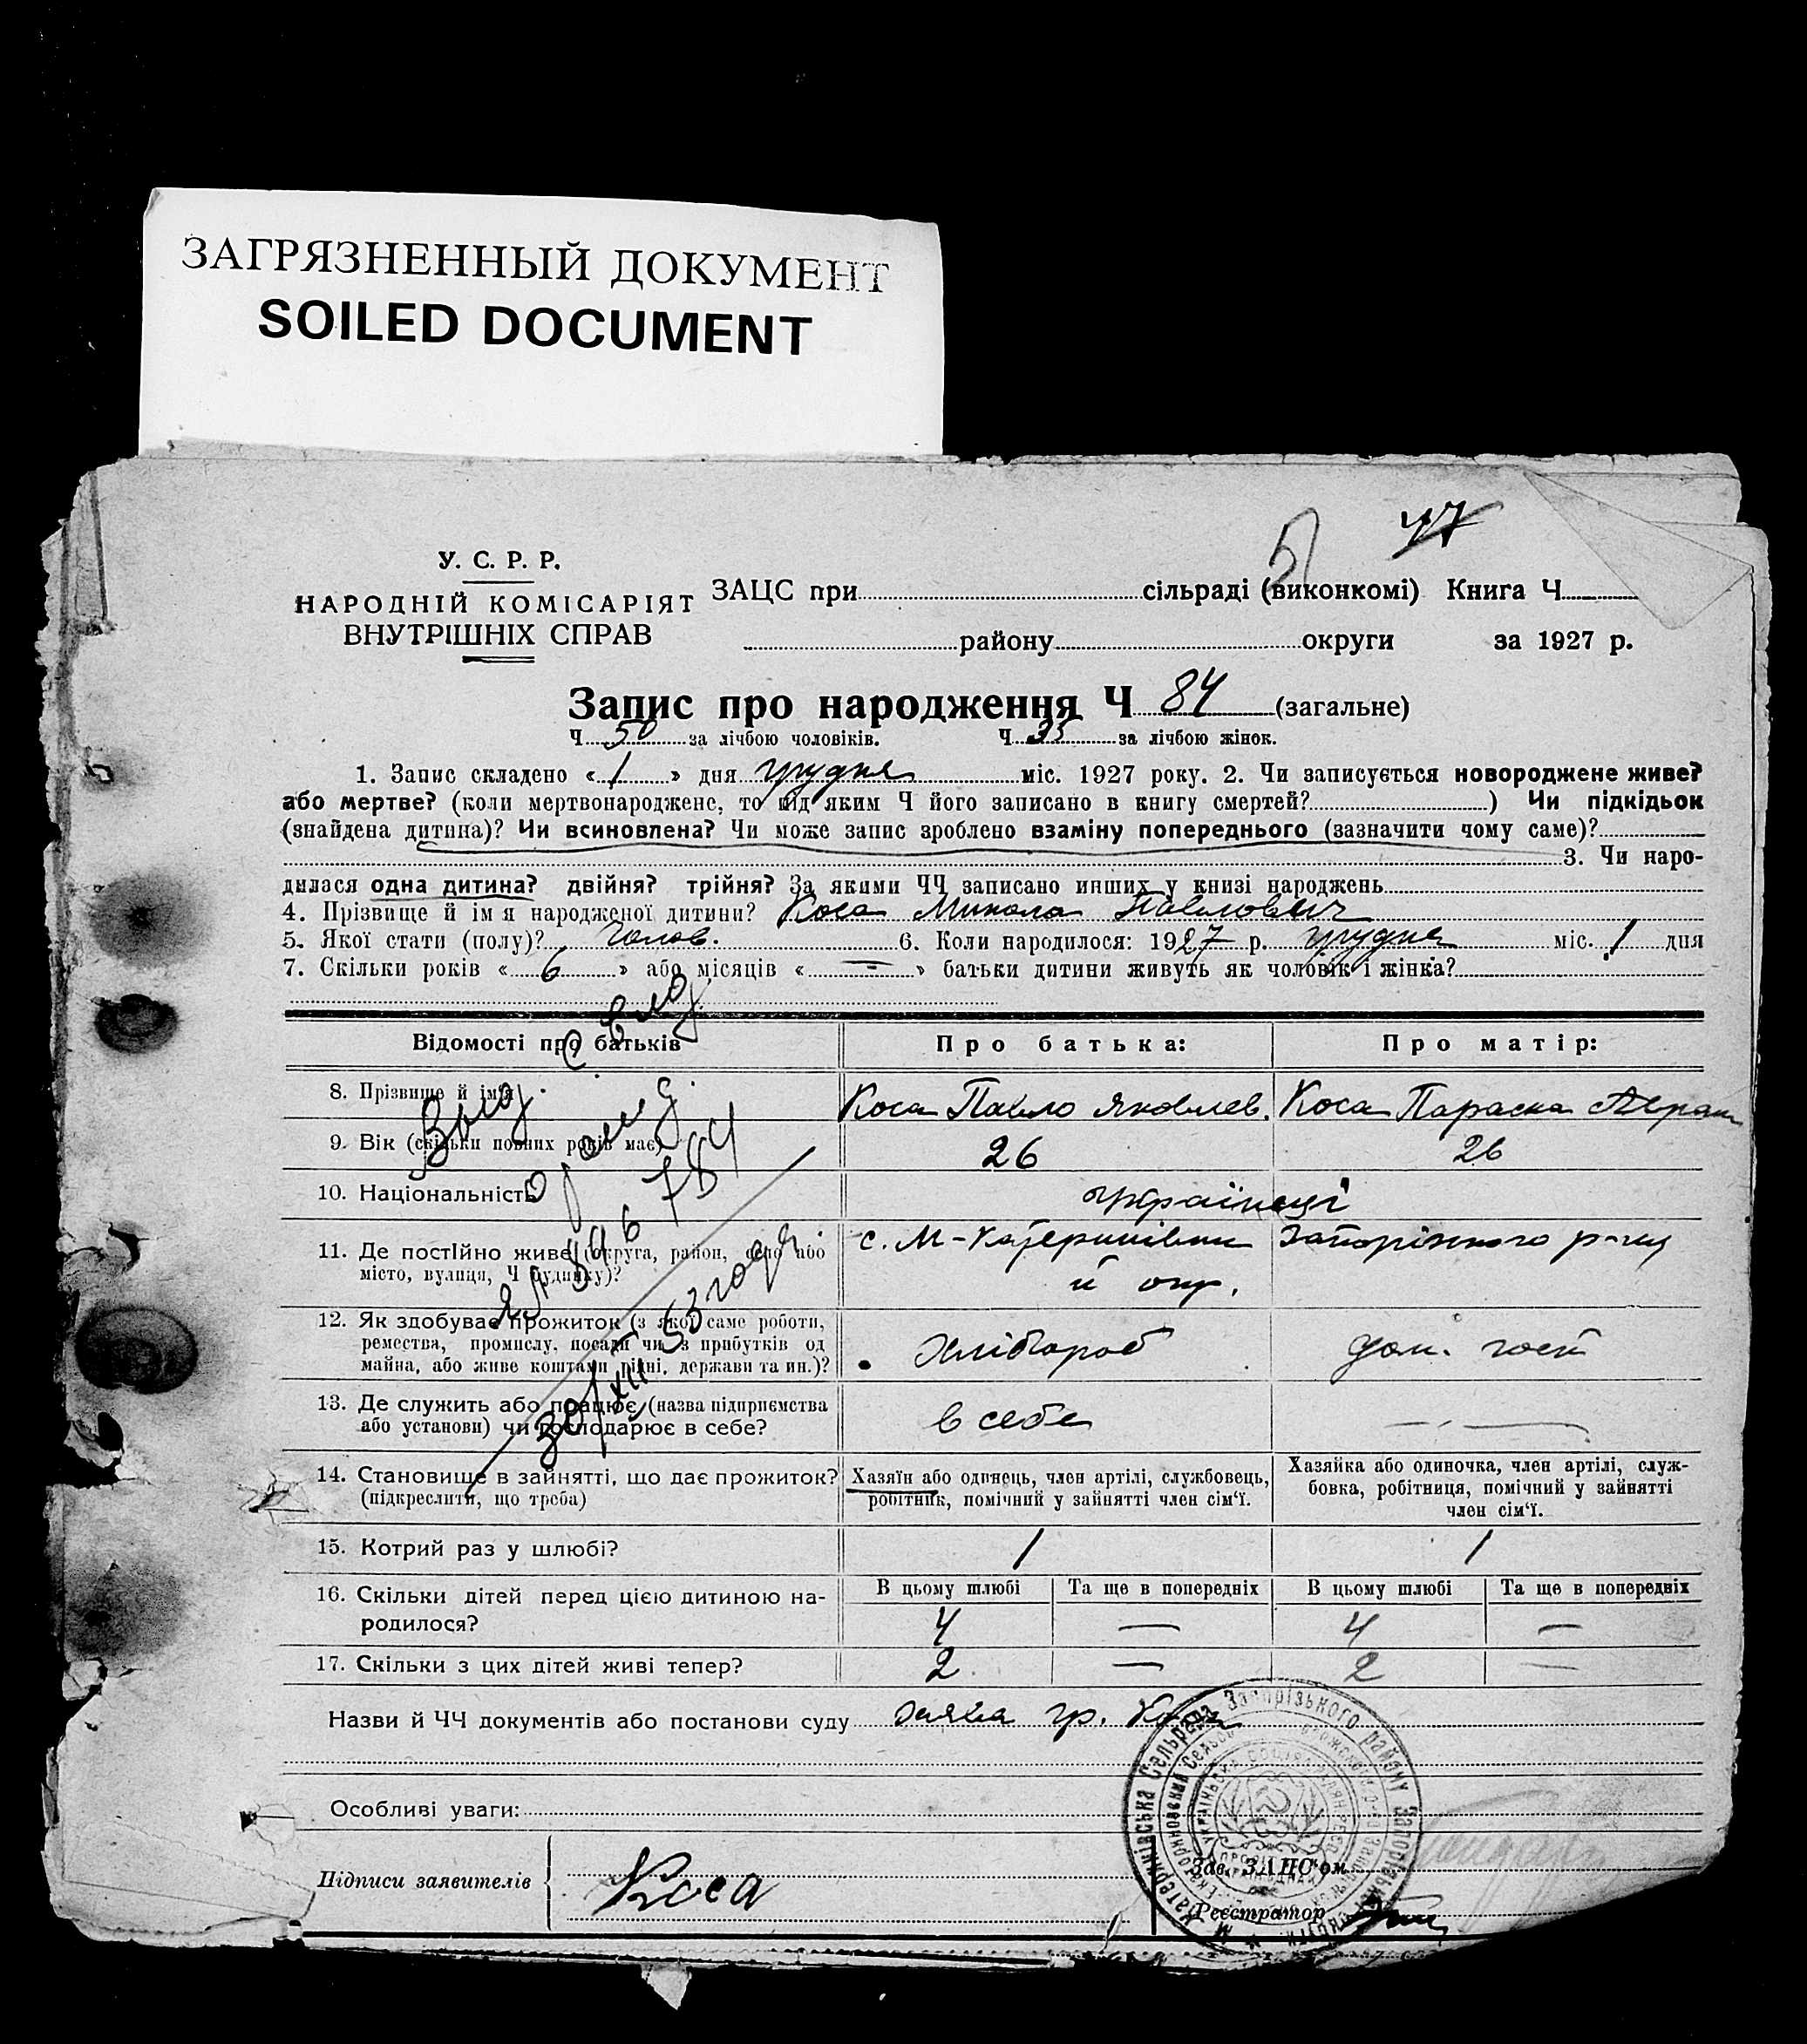 ЗАГРЯЗНЕННЫЙ ДОКУМЕНТ
SOILED DOCUMENT
47
У. С. Р. Р.
НАРОДНІЙ КОМІСАРІЯТ
ВНУТРІШНІХ СПРАВ
ЗАЦС при сільраді (виконкомі) Книга Ч
району округи за 1927 р.
Запис про народження Ч 84 (загальне)
Ч 50 за лічбою чоловіків. Ч 35 за лічбою жінок.
1. Запис складено « 1 » дня грудня міс. 1927 року. 2. Чи записується новороджене живе?
або мертве? (коли мертвонароджене, то під яким Ч його записано в книгу смертей? ) Чи підкідьок
(знайдена дитина)? Чи всиновлена? Чи може запис зроблено взаміну попереднього (зазначити чому саме)?
3. Чи наро-
дилася одна дитина? двійня? трійня? За якими ЧЧ записано инших у книзі народжень
4. Прізвище й ім'я народженої дитини? Коса Микола Павлович
5. Якої стати (полу)? Чолов. 6. Коли народилося: 1927 р. грудня міс. 1 дня
7. Скільки років « 6 » або місяців « — » батьки дитини живуть як чоловік і жінка?
Відомості про батьків Про батька: Про матір:
8. Прізвище й ім'я Коса Павло Яковлев. Коса Параска Аврам
9. Вік (скільки повних років має) 26 26
10. Національність українці
11. Де постійно живе (округа, район, село або
місто, вулиця, Ч будинку)?
с. М-Катеринівки Запоріжького р-ну
й окр.
12. Як здобуває прожиток (з якої саме роботи,
ремества, промислу, посади чи з прибутків од
майна, або живе коштами рідні, держави та ин.)?
Хлібороб дом. госп
13. Де служить або працює, (назва підприємства
або установи) чи господарює в себе?
в себе —
14. Становище в зайнятті, що дає прожиток?
(підкреслити, що треба)
Хазяїн або одинець, член артілі, службовець,
робітник, помічний у зайнятті член сім'ї.
Хазяйка або одиночка, член артілі, служ-
бовка, робітниця, помічний у зайнятті
член сім'ї.
15. Котрий раз у шлюбі? 1 1
16. Скільки дітей перед цією дитиною на-
родилося?
В цьому шлюбі Та ще в попередніх В цьому шлюбі Та ще в попередніх
4 — 4 —
17. Скільки з цих дітей живі тепер? 2 — 2 —
30/XII 53 года
Назви й ЧЧ документів або постанови суду заява гр. Коса
Особливі уваги:
Підписи заявителів Коса
Зав. ЗАЦС'ом
Реєстратор
Катеринівська Сельрада Запорізького району Запорізької округи